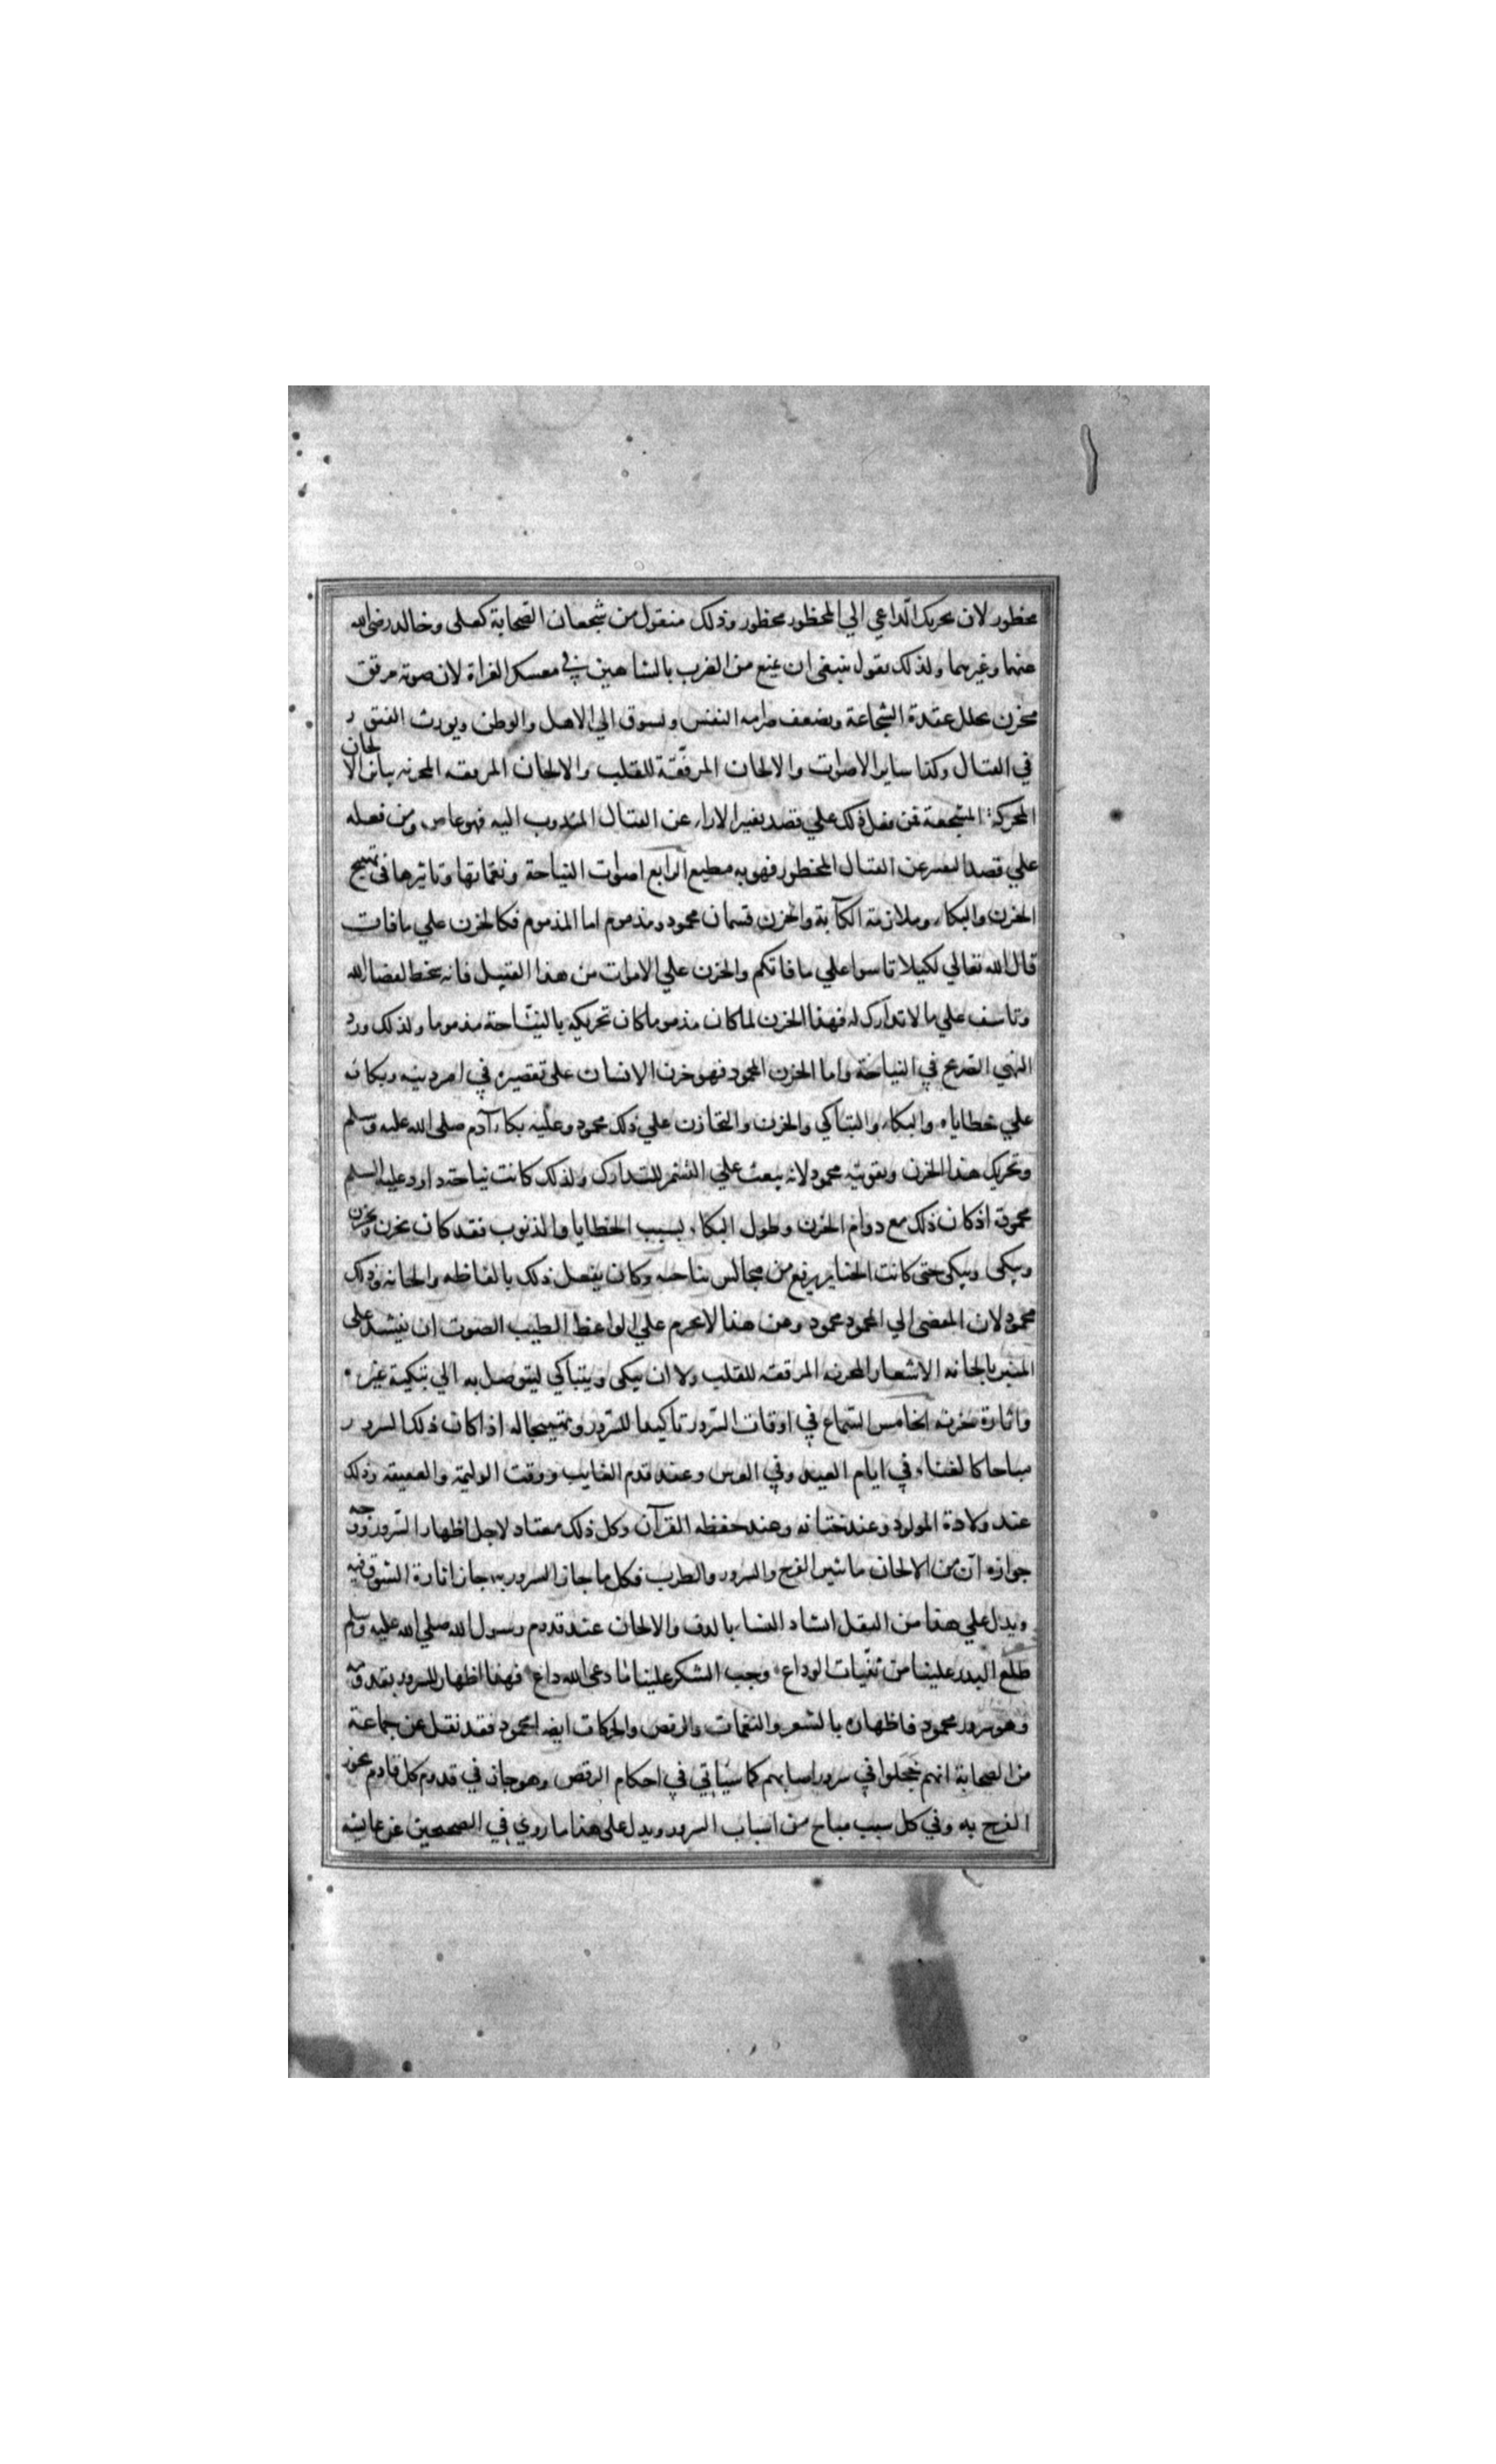 محظور لان تحريك الداعي الي المحظور محظور وذلك منقول من شجعان الصحابة كعلى وخالد رضى الله
عنهما وغيرهما ولذلك نقول ينبغى ان يمنع من الضرب بالشاهين في معسكر الغزاة لان صوته مرقق
محزن يحلل عقدة الشجاعة ويضعف صرامه النفس ويشوق الي الاهل والوطن ويورث الفتور
في القتال وكذا ساير الاصوات والالحان المرققة للقلب والالحان المرققه المحزنه يباين الالحان
المحركة المشجعة فمن فعل ذلك علي قصد تغيير الاراء عن القتال المندوب اليه فهو عاص ومن فعله
علي قصد التفتير عن القتال المحظور فهو به مطيع الرابع اصوات النياحة ونغماتها وتاثيرها في تهييج
الحزن والبكاء وملازمة الكآبة والحزن قسمان محمود ومذموم اما المذموم فكالحزن علي ما فات
قال الله تعالي لكيلا تاسوا علي ما فاتكم والحزن علي الاموات من هذا القبيل فانه سخط لقضا الله
وتاسف علي ما لا تدارك له فهذا الحزن لما كان مذموما كان تحريكه بالنياحة مذموما ولذلك ورد
النهي الصريح في النياحة واما الحزن المحمود فهو حزن الانسان على تقصيره في امر دينه وبكائه
علي خطاياه والبكاء والتباكي والحزن والتحازن علي ذلك محمود وعليه بكاء آدم صلى الله عليه وسلم
وتحريك هذا الحزن وتقويته محمود لانه يبعث علي التشمر للتدارك ولذلك كانت نياحة داود عليه السلم
محمودة اذ كان ذلك مع دوام الحزن وطول البكاء بسبب الخطايا والذنوب فقد كان يحزن ويحزن
ويبكى ويبكى حتى كانت الجنايز يرفع من مجالس نياحته وكان يفعل ذلك بالفاظه والحانه وذلك
محمود لان المفضى الي المحمود محمود وعن هذا لا يحرم علي الواعظ الطيب الصوت ان ينشد على
المنبر بالحانه الاشعار المحزنه المرققه للقلب ولا ان يبكى ويتباكي ليتوصل به الي تبكية غيره
واثارة حزنه الخامس السماع في اوقات السرور تاكيدا للسرور وتهييجا له اذا كان ذلك السرور
مباحا كالغناء في ايام العيد وفي العرس وعند قدوم الغايب ووقت الوليمة والعقيقه وذلك
عند ولادة المولود وعند ختانه وعند حفظه القرآن وكل ذلك معتاد لاجل اظهار السرور ووجه
جوازه ان من الالحان ما يثير الفرح والسرور والطرب فكل ما جاز السرور به جاز اثارة الشوق فيه
ويدل علي هذا من النقل انشاد النساء بالدف والالحان عند قدوم رسول الله صلي الله عليه وسلم
طلع البدر علينا من ثنيات الوداع وجب الشكر علينا ما دعى لله داع فهذا اظهار للسرور بقدومه
وهو سرور محمود فاظهاره بالشعر والنغمات والرقص والحركات ايضا محمود فقد نقل عن جماعة
من الصحابة انهم حجلوا في سرور اصابهم كما سياتي في احكام الرقص وهو جائز في قدوم كل قادم يجوز
الفرح به وفي كل سبب مباح من اسباب السرور ويدل على هذا ما روي في الصحيحين عن عائشه